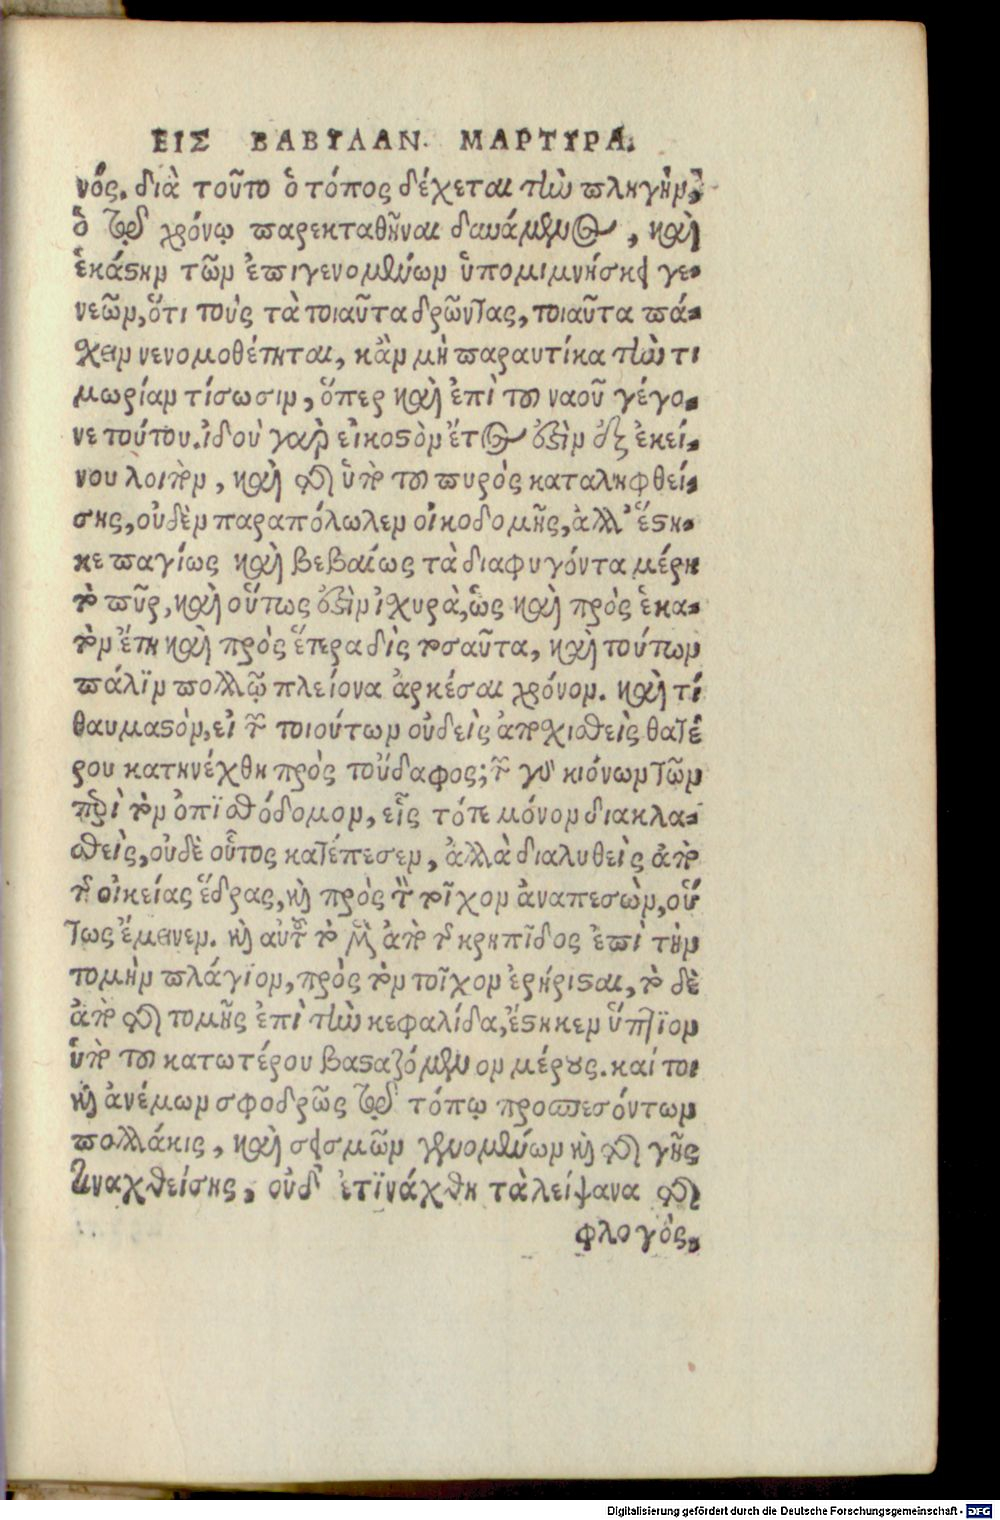 ΕΙΣ ΒΑΒΥΛΑΝ. ΜΑΡΤΥΡΑ.
νός. διὰ τοῦτο ὁ τόπος δέχεται τὴν πληγὴν,
ὁ τῷ χρόνῳ παρεκταθῆναι δυνάμενος, καὶ
ἑκάστην τῶν ἐπιγενομένων ὑπομιμνήσκει γε-
νεῶν, ὅτι τοὺς τὰ τοιαῦτα δρῶντας, τοιαῦτα πά-
χειν νενομοθέτηται, κἂν μὴ παραυτίκα τὴν τι
μωρίαν τίσωσιν, ὅπερ καὶ ἐπὶ τοῦ ναοῦ γέγο-
νε τούτου. ἰδοὺ γὰρ εἰκοστὸν ἔτος ἐστὶν ἐξ ἐκεί-
νου λοιπὸν, καὶ τῆς ὑπὸ τοῦ πυρός καταληφθεί-
σης, οὐδὲν παραπόλωλεν οἰκοδομῆς, ἀλλ' ἕστη-
κε παγίως καὶ βεβαίως τὰ διαφυγόντα μέρη
τὸ πῦρ, καὶ οὕτως ἐστὶν ἰχυρὰ, ὡς καὶ πρὸς ἑκα-
τὸν ἔτη καὶ πρὸς ἕτερα δὶς τοσαῦτα, καὶ τούτων
πάλϊν πολλῷ πλείονα ἀρκέσαι χρόνον. καὶ τί
θαυμαστὸν, εἰ τῶν τοιούτων οὐδεὶς ἀποχισθεὶς θατέ
ρου κατηνέχθη πρὸς τοὔδαφος; τῶν γοῦν κιόνων τῶν
περὶ τὸν ὀπϊσθόδομον, εἷς τότε μόνον διακλα-
σθεὶς, οὐδὲ οὗτος κατέπεσεν, ἀλλὰ διαλυθεὶς ἀπὸ
τῆς οἰκείας ἕδρας, καὶ πρὸς τὸν τοῖχον ἀναπεσὼν, οὕ
τως ἔμεινεν. καὶ αὐτοῦ τὸ μὲν ἀπὸ τῆς κρηπῖδος ἐπὶ τὴν
τομὴν πλάγϊον, πρὸς τὸν τοῖχον ἐρήρισται, τὸ δὲ
ἀπὸ τῆς τομῆς ἐπὶ τὴν κεφαλίδα, ἕστηκεν ὕπτϊον
ὑπὸ τοῦ κατωτέρου βασταζόμενον μέρους. καί τοι
καὶ ἀνέμων σφοδρῶς τῷ τόπῳ προσπεσόντων
πολλάκις, καὶ σεισμῶν γενομένων καὶ τῆς γῆς
τιναχθείσης, οὐδ' ἐτϊνάχθη τὰ λείψανα τῆς
φλογὸς,
Digitalisierung gefördert durch die Deutsche Forschungsgemeinschaft - DFG